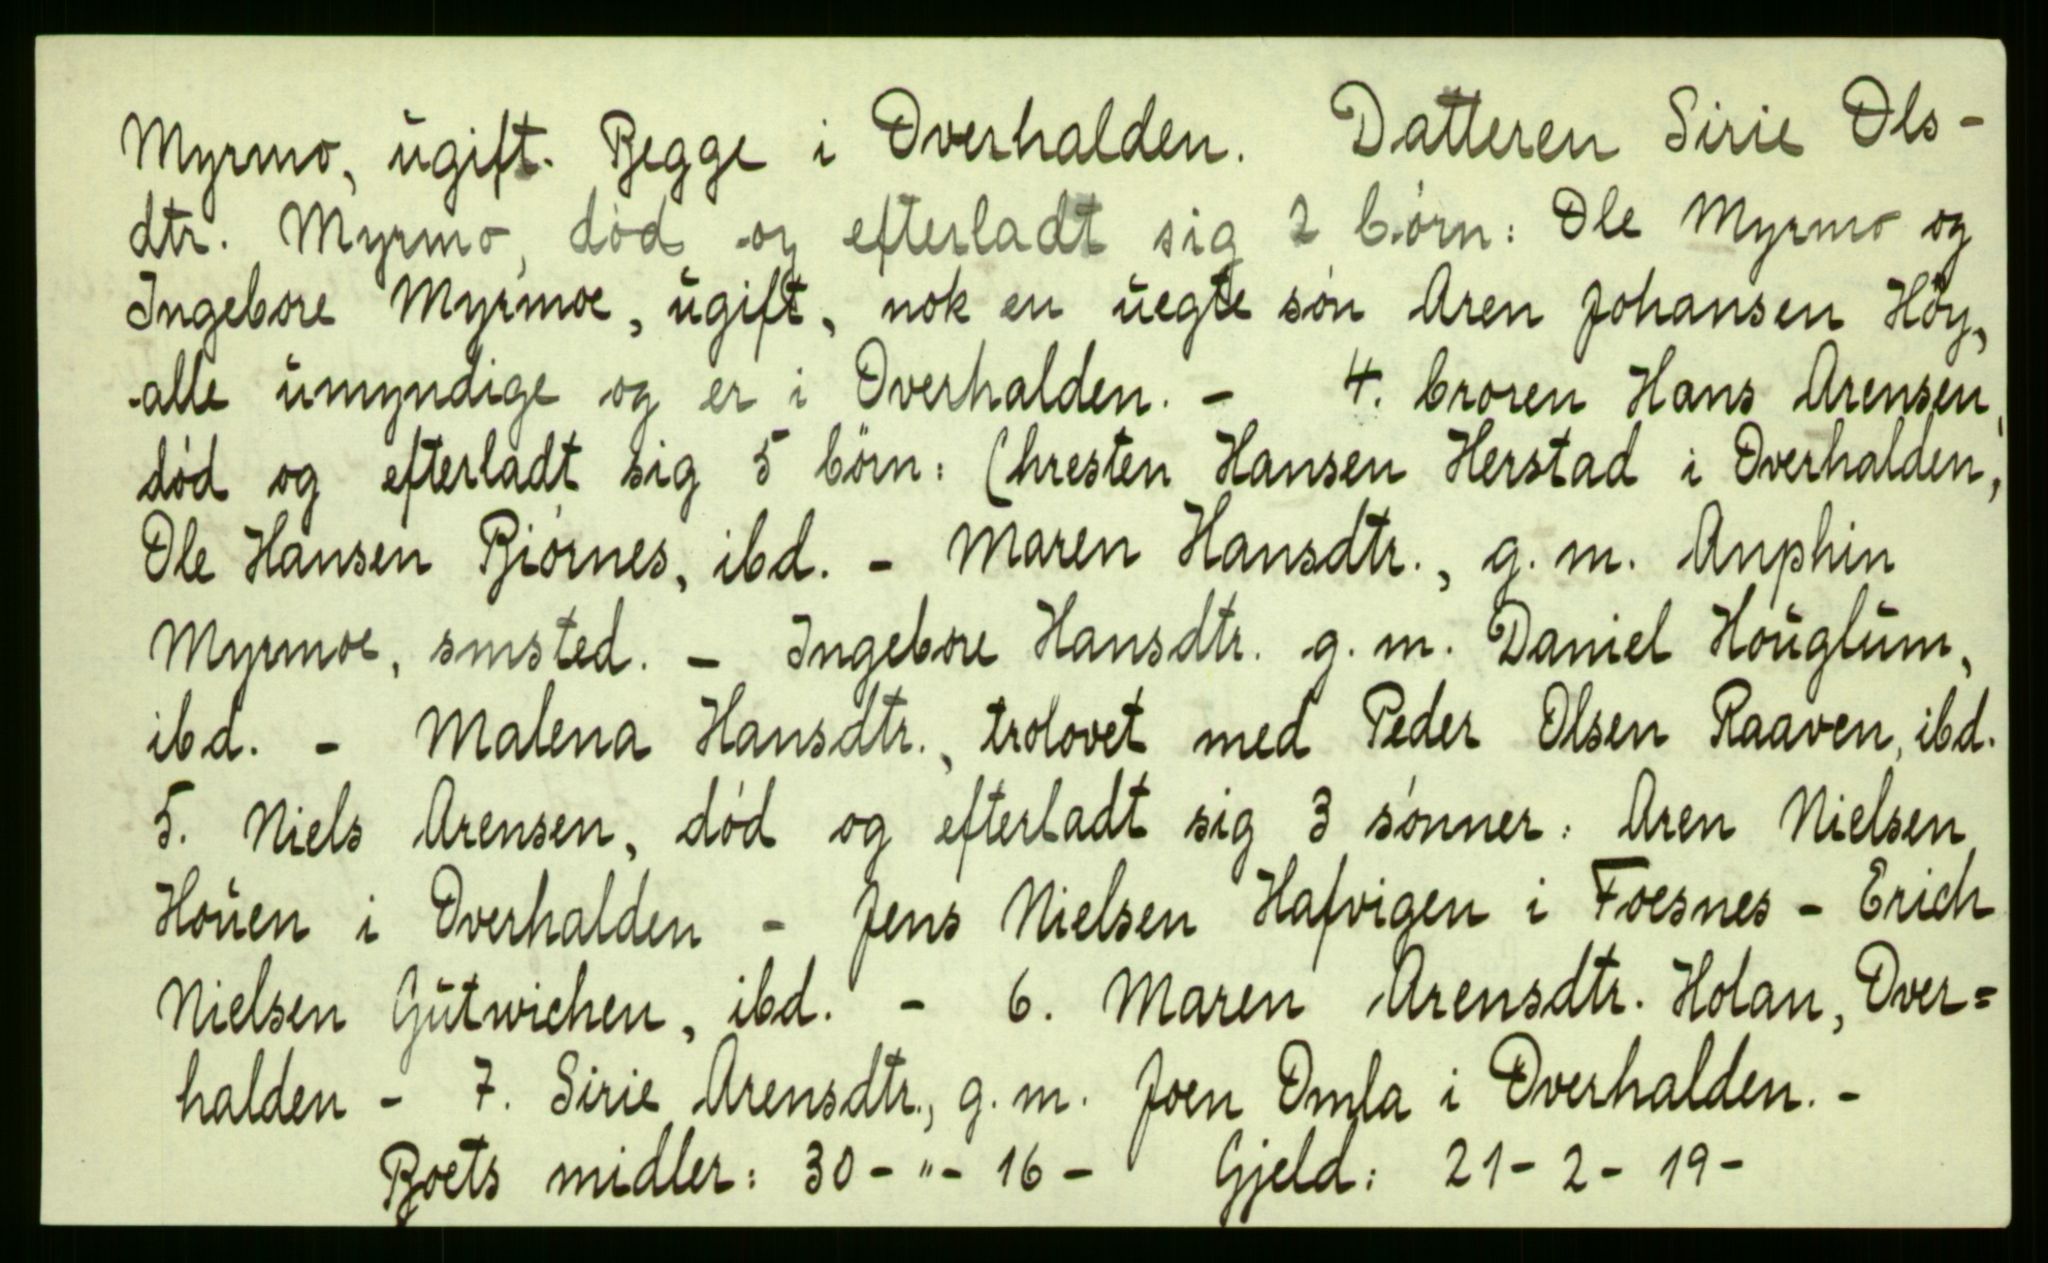 Myrmo, ugift. Begge i Overhalden. Datteren Sirie Ols-
dtr. Myrmo, död og efterladt sig 2 börn: Ole Myrmo og
Ingebore Myrmoe, ugift, nok en uegte sön Aren Johansen Höy,
alle umyndige og er i Overhalden. - 4. broren Hans Arensen,
död og efterladt sig 5 börn: Chresten Hansen Herstad i Overhalden,
Ole Hansen Biörnes, ibd. - Maren Hansdtr., g. m. Anphin
Myrmoe, smsted. - Ingebore Hansdtr. g. m. Daniel Houglum,
ibd. - Malena Hansdtr., trolovet med Peder Olsen Raaven, ibd.
5. Niels Arensen, död og efterladt sig 3 sönner: Aren Nielsen
Houen i Overhalden - Jens Nielsen Hafvigen i Foesnes - Erich
Nielsen Gutwichen, ibd. - 6. Maren Arensdtr. Holan, Over=
halden - 7. Sirie Arensdtr., g. m. Joen Omla i Overhalden. -
Boets midler: 30 - " - 16 - Gjeld: 21 - 2 - 19 -